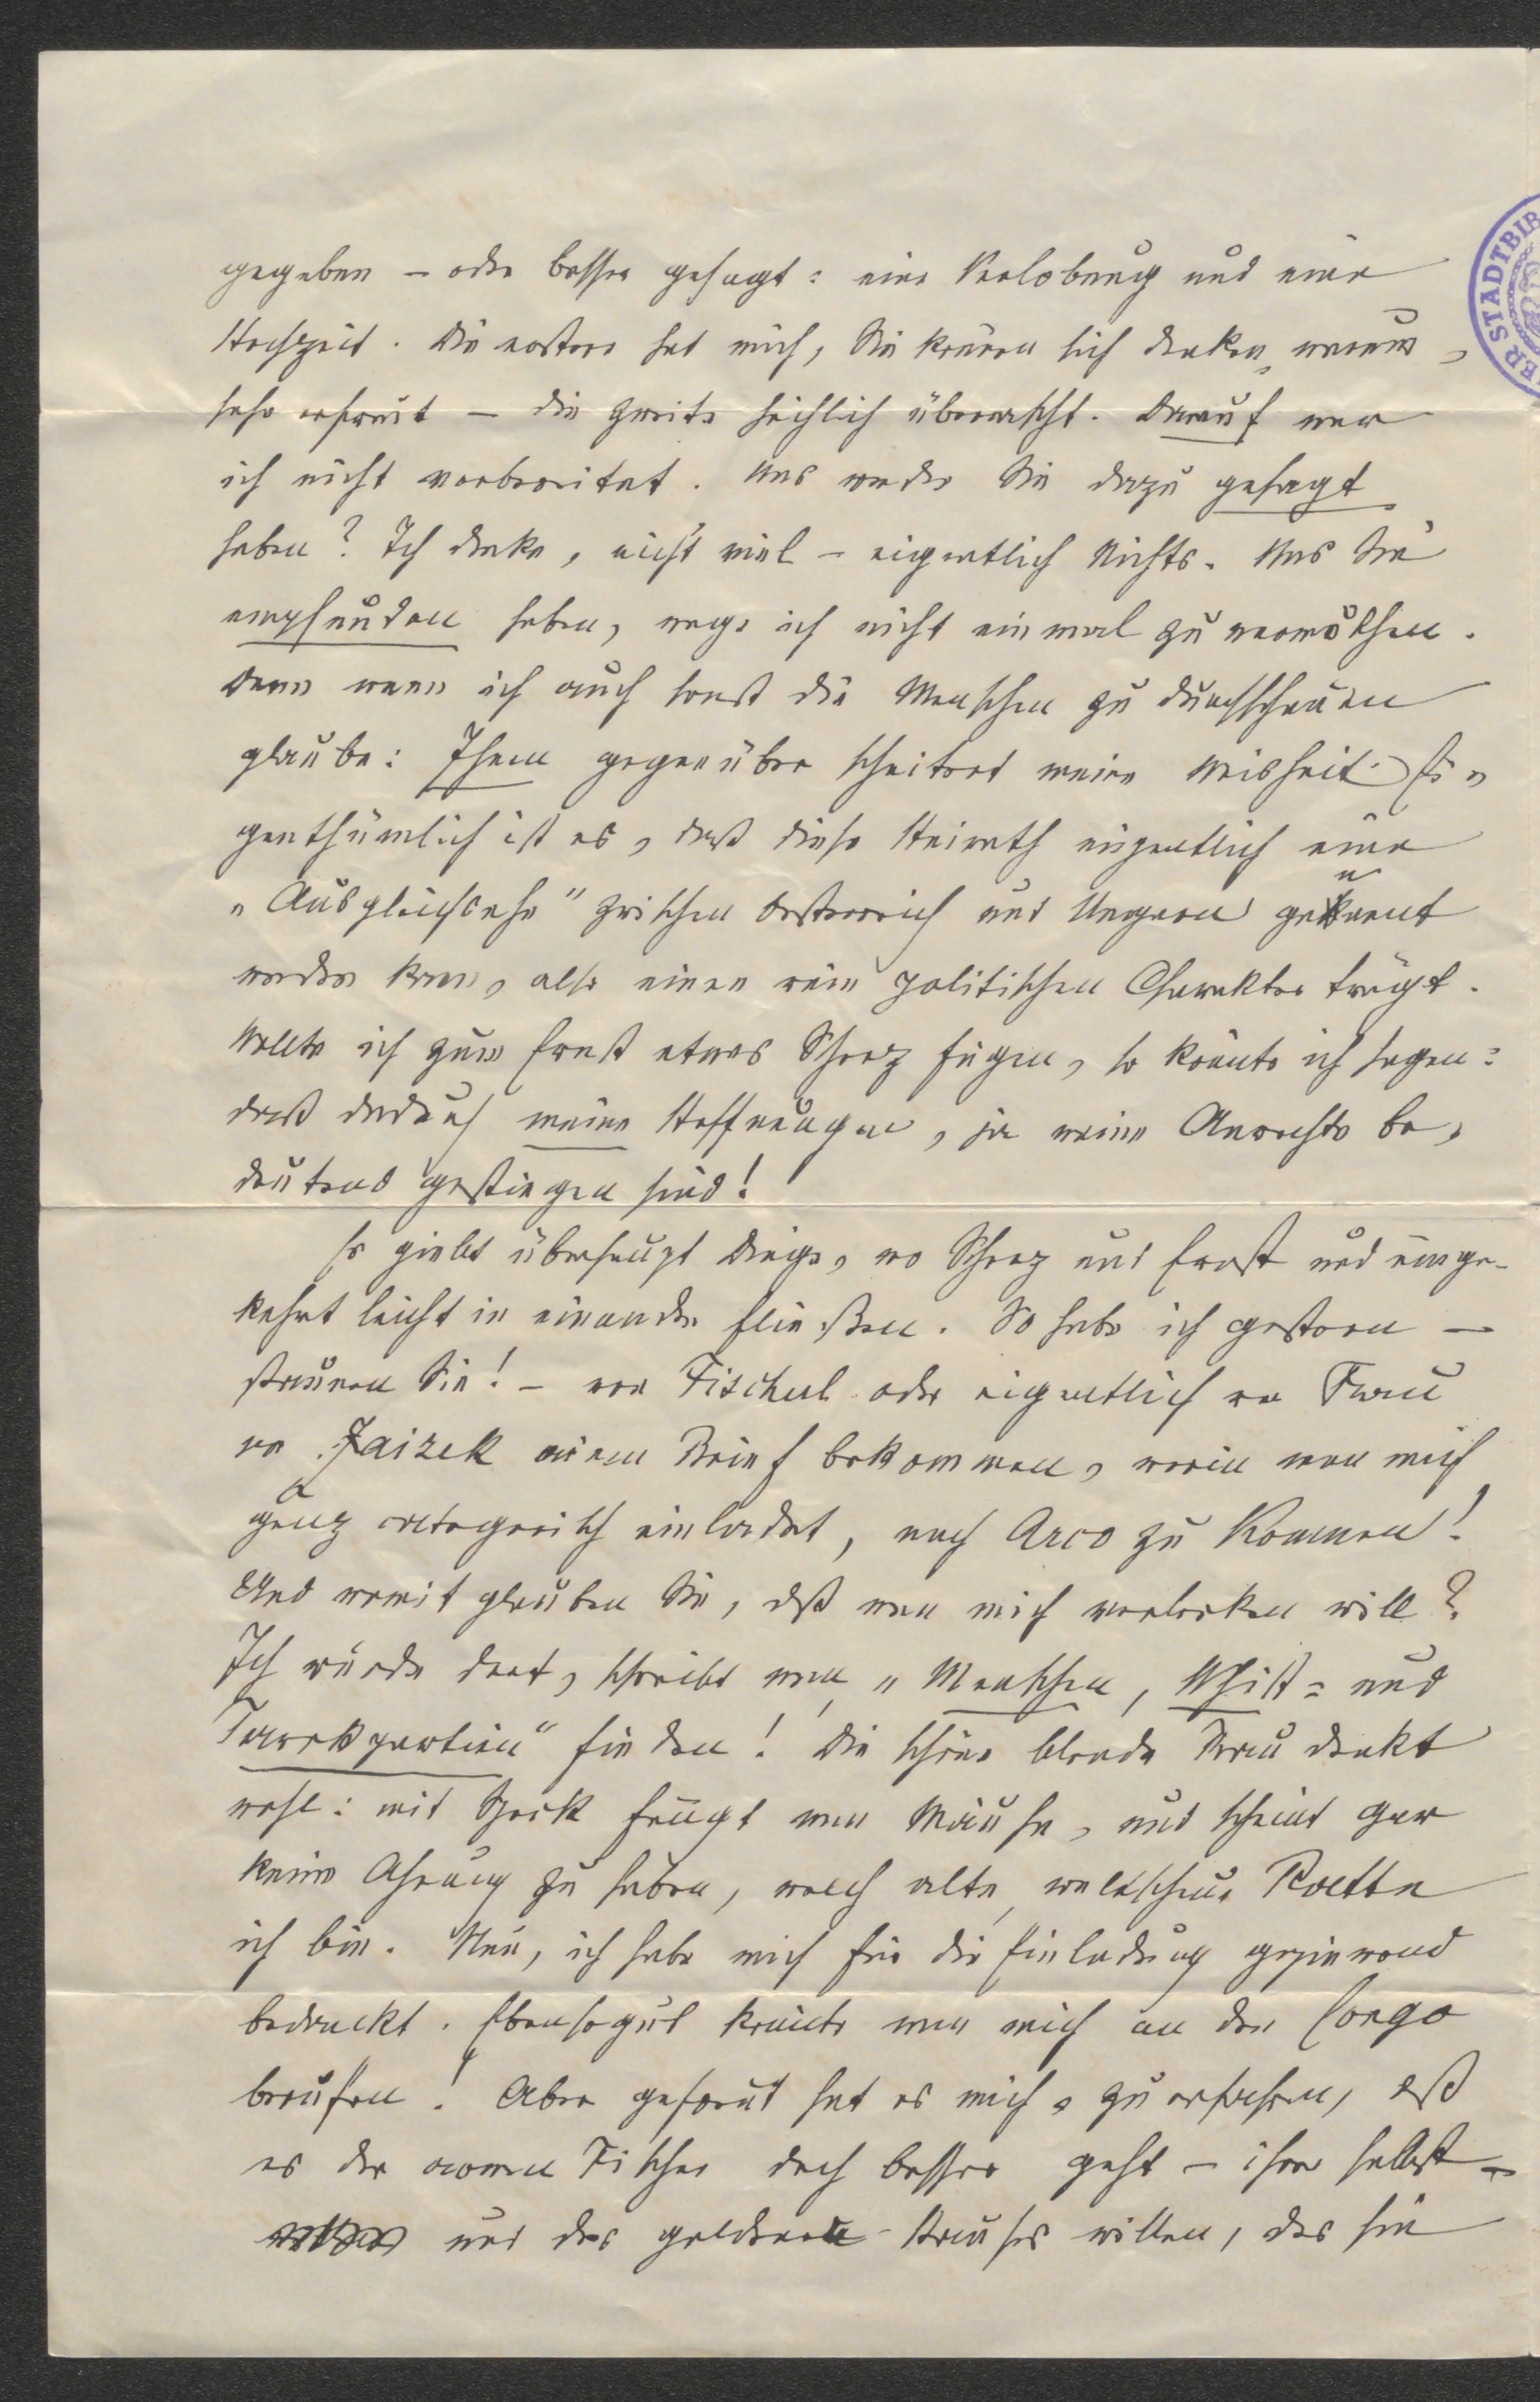 gegeben – oder besser gesagt: eine Verlobung und eine
Hochzeit. Die erstere hat mich, Sie können sich denken, warum,
sehr erfreut – die zweite höchlich überrascht. Darauf war
ich nicht vorbereitet. Was werden Sie dazu gesagt
haben? Ich denke, nicht viel – eigentlich Nichts. Was Sie
empfunden haben, wage ich nicht einmal zu vermuthen.
Denn wenn ich auch sonst die Menschen zu durchschauen
glaube: Ihnen gegenüber scheitert meine Weisheit. Ei-
genthümlich ist es, daß diese Heirath eigentlich eine
"Ausgleichsehe" zwischen Oesterreich und Ungarn genannt
werden kann, also einen rein politischen Charakter trägt.
Wollte ich zum Ernst etwas Scherz fügen, so könnte ich sagen:
daß dadurch meine Hoffnungen, ja meine Anrechte be-
deutend gestiegen sind!
Es giebt überhaupt Dinge, wo Scherz und Ernst und umge-
kehrt leicht in einander fließen. So habe ich gestern –
staunen Sie! – von Fischel oder eigentlich von Frau
von Jaizek einen Brief bekommen, worin man mich
ganz categorisch einladet, nach Arco zu kommen!
Und womit glauben Sie, daß man mich verlocken will?
Ich würde dort, schreibt man, "Menschen, Whist- und
Tarokpartien" finden! Die schöne blonde Frau denkt
wohl: mit Speck fängt man Mäuse, und scheint gar
keine Ahnung zu haben, welch alte, weltscheue Ratte
ich bin. Nun, ich habe mich für die Einladung geziemend
bedankt. Ebensogut könnte man mich an den Congo
berufen! Aber gefreut hat es mich, zu erfahren, daß
es der armen Fischer doch besser geht – ihrer selbst-
und des goldenen Hauses willen, das sie
STADTBIB